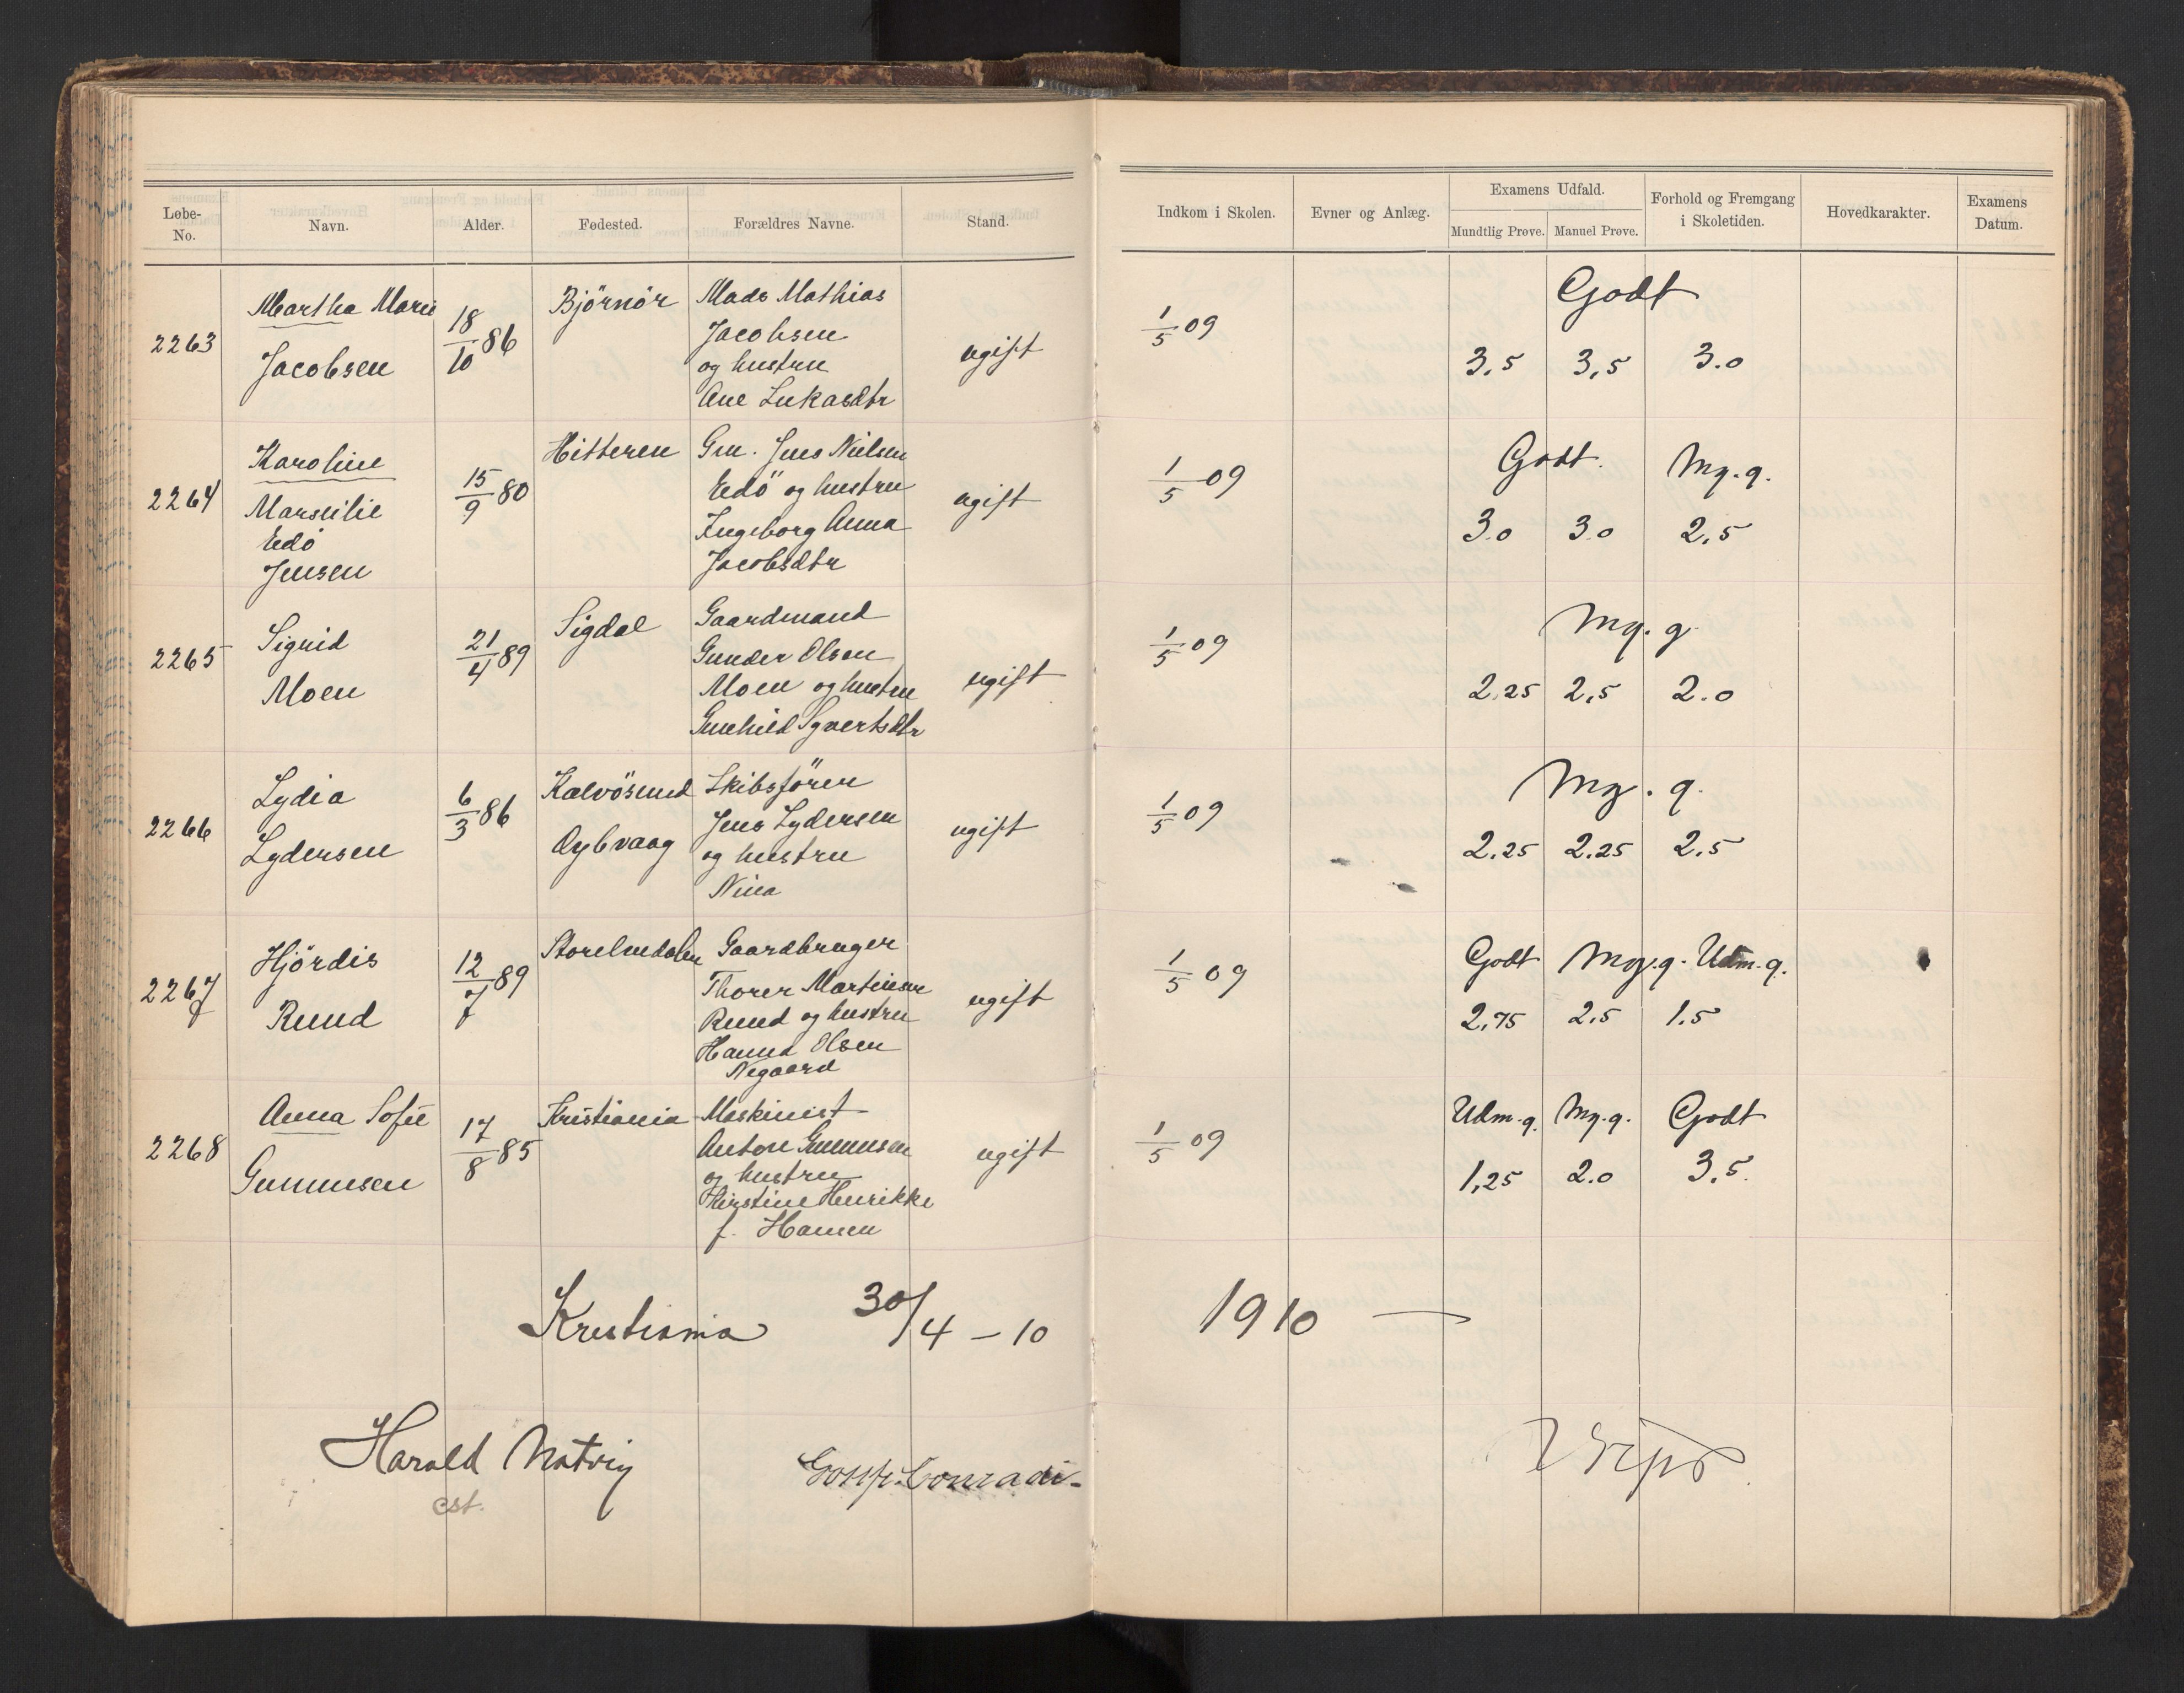 Løbe-No. Navn. Alder. Fødested. Forældres Navne. Stand. Indkom i Skolen. Evner og Anlæg. Examens Udfald. Mundtlig Prøve. Manuel Prøve. Forhold og Fremgang i Skoletiden. Hovedkarakter. Examens Datum.
2263
Martha Marie
Jacobsen
18/10 86
Björnör
Mads Mathias
Jacobsen
og hustru
Ane Lukasdtr
ugift
1/5 09
Godt
3,5 3,5 3.0
2264
Karoline
Marseilie
Edö
Jensen
15/9 80
Hitteren
Gm. Jens Nielsen
Edö og hustru
Ingeborg Anna
Jacobsdtr
ugift
1/5 09
Godt. Mg.g.
3.0 3.0 2,5
2265
Sigrid
Moen
21/4 89
Sigdal
Gaardmand
Gunder Olsen
Moen og hustru
Gunhild Syvertsdtr
ugift
1/5 09
Mg.g.
2.25 2,5 2.0
2266
Lydia
Lydersen
6/3 86
Kalvösund
Dybvaag
Skibsförer
Jens Lydersen
og hustru
Nina
ugift
1/5 09
Mg.g.
2.25 2.25 2.5
2267
Hjördis
Ruud
12/7 89
Storelvedalen
Gaardbruger
Thorer Martinsen
Ruud og hustru
Hanna Olsen
Negaard
ugift
1/5 09
Godt Mg.g. Udm.g.
2,75 2.5 1.5
2268
Anna Sofie
Gummesen
17/8 85
Kristiania
Maskinist
Anton Gummesen
og hustru
Kirstine Henrikke
f. Hansen
ugift
1/5 09
Udm.g. Mg.g. Godt
1,25 2.0 3,5.
Kristiania 30/4 - 10 1910 —
Harald Natvig
cst.
Conradi